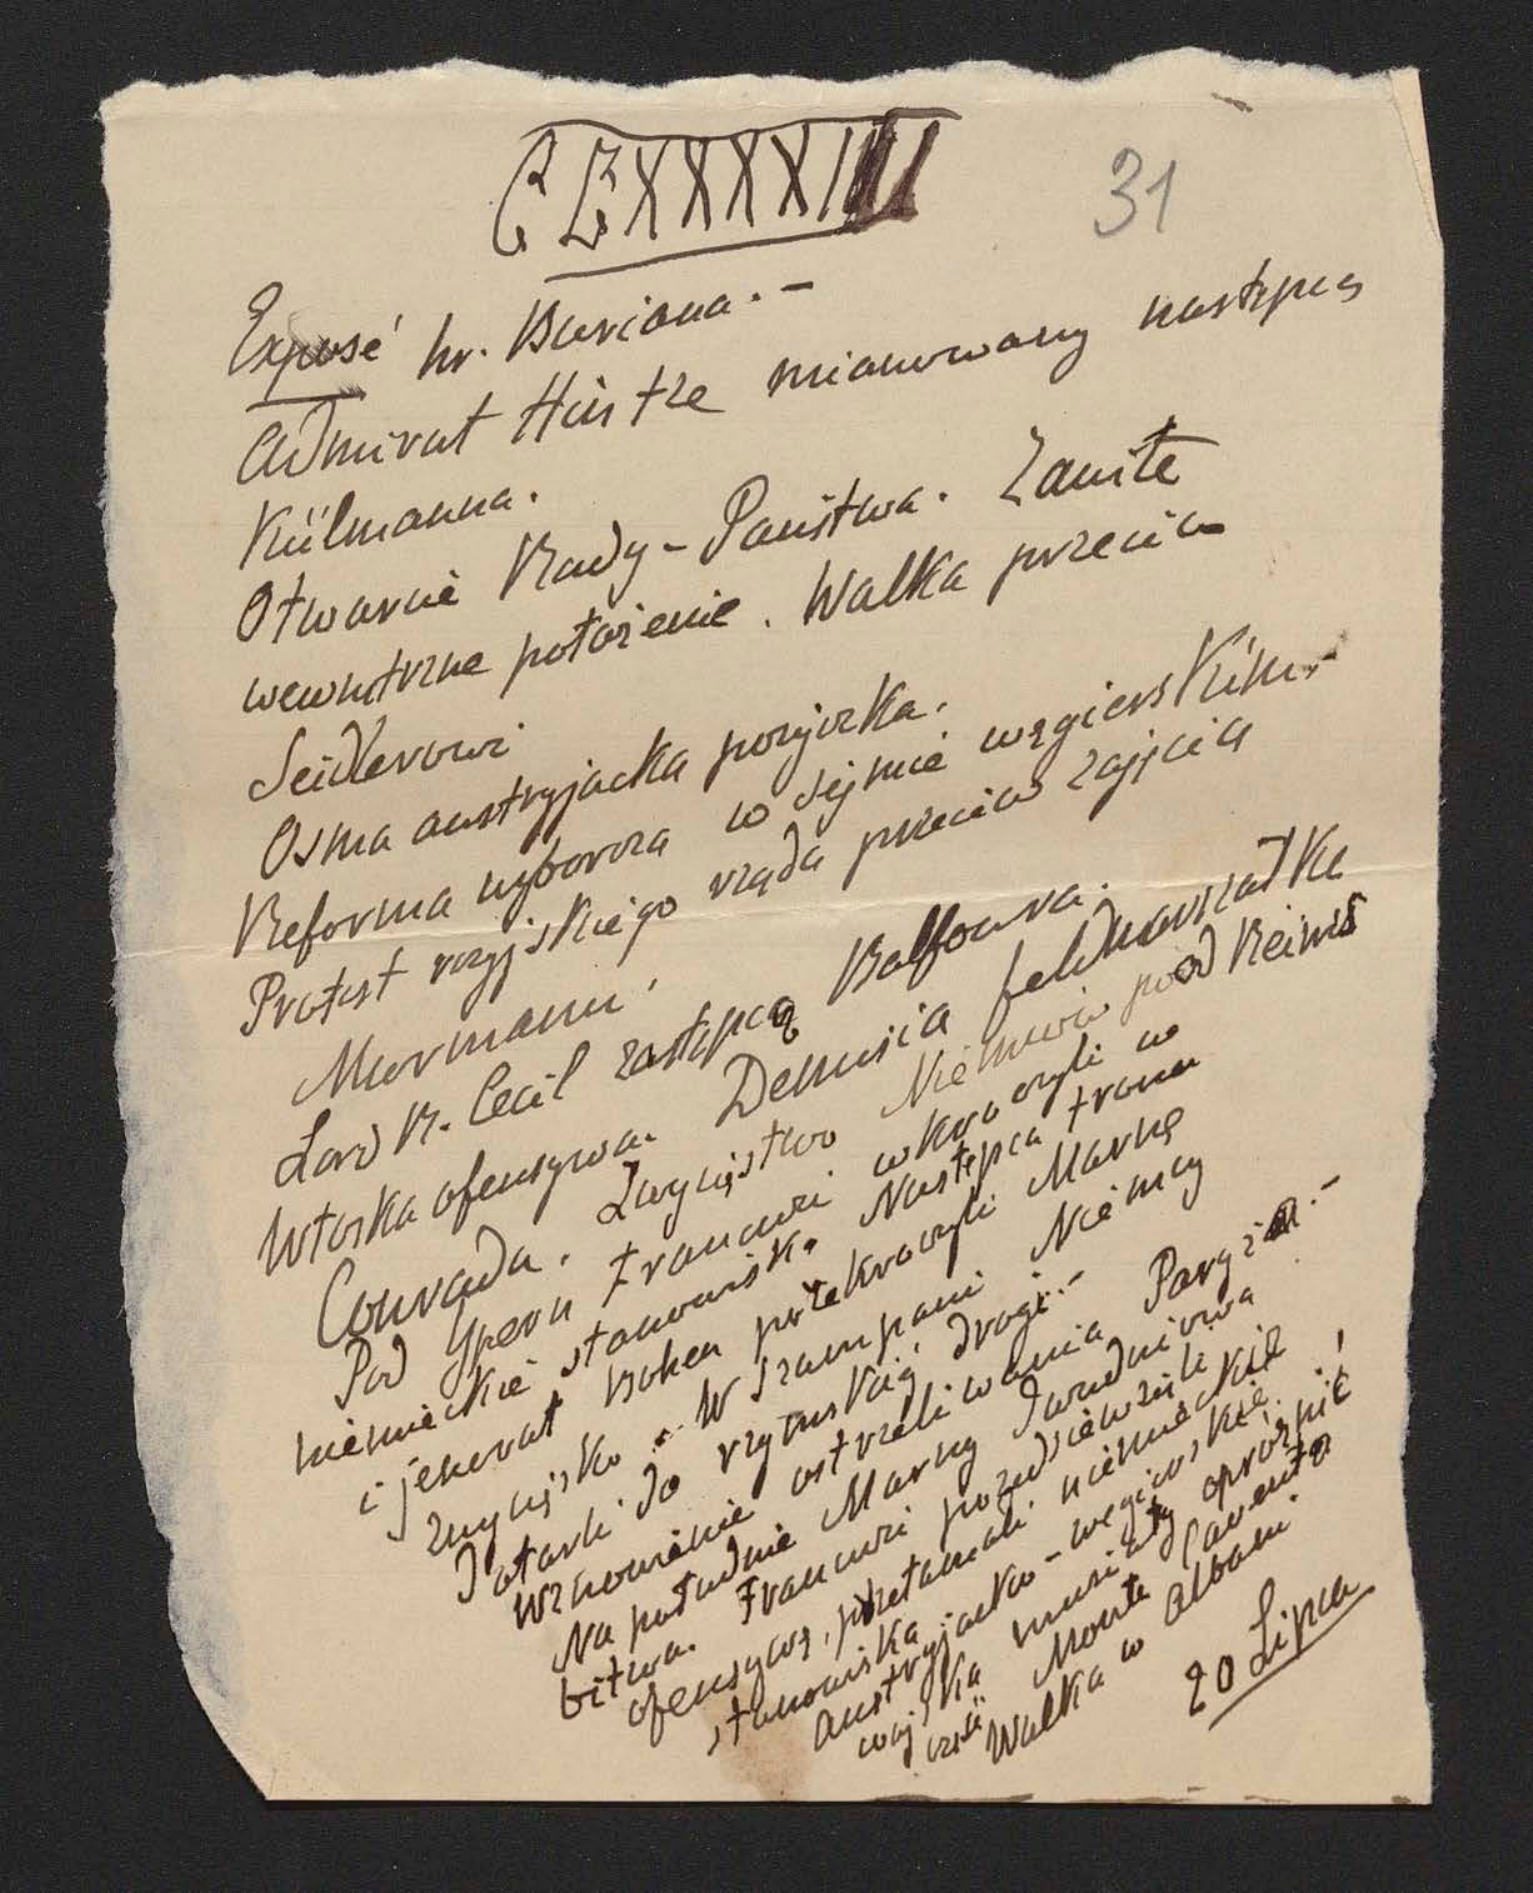 CLXXXXIII
31
Exposé hr. Buriana. -
Admirał Hintze mianowany następcą
Külmanna.
Otwarcie Rady - Państwa. Zawiłe
wewnętrzne położenie. Walka przeciw
Seidlerowi
Osma austryjacka pożyczka.
Reforma wyborcza w sejmie węgierskim. -
Protest rosyjskiego rządu przeciw zajęcia
Murmanu.
Lord R. Cecil zastępcą Balfoura.
Włoska ofensywa. Demisia feldmarszałka
Conrada. Zwycięstwo Niemców pod Reims
Pod Ypern Francuzi wkroczyli w
niemieckie stanowiska. Następca tronu
i jenerał Bohen przekroczyli Marnę
zwycięsko. - W Szampani Niemcy
dotarli do rzymskiej drogi. -
Wznowienie ostrzeliwania Paryża. -
Na południe Marny dwudniowa
bitwa. Francuzi przedsięwzieli
ofensywę, przełamali niemieckie
stanowiska.
Austryjacko - węgierskie
wojska musiały opróżnić!
Monte
Walka w Albani.
20 Lipca